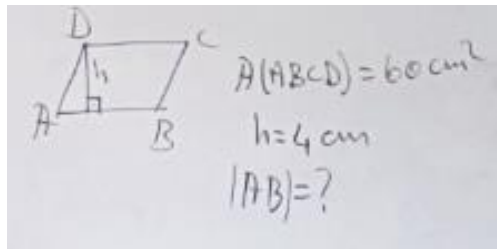 D
C
h
A
B
A(ABCD)=60cm²
h=4 cm
|AB|=?